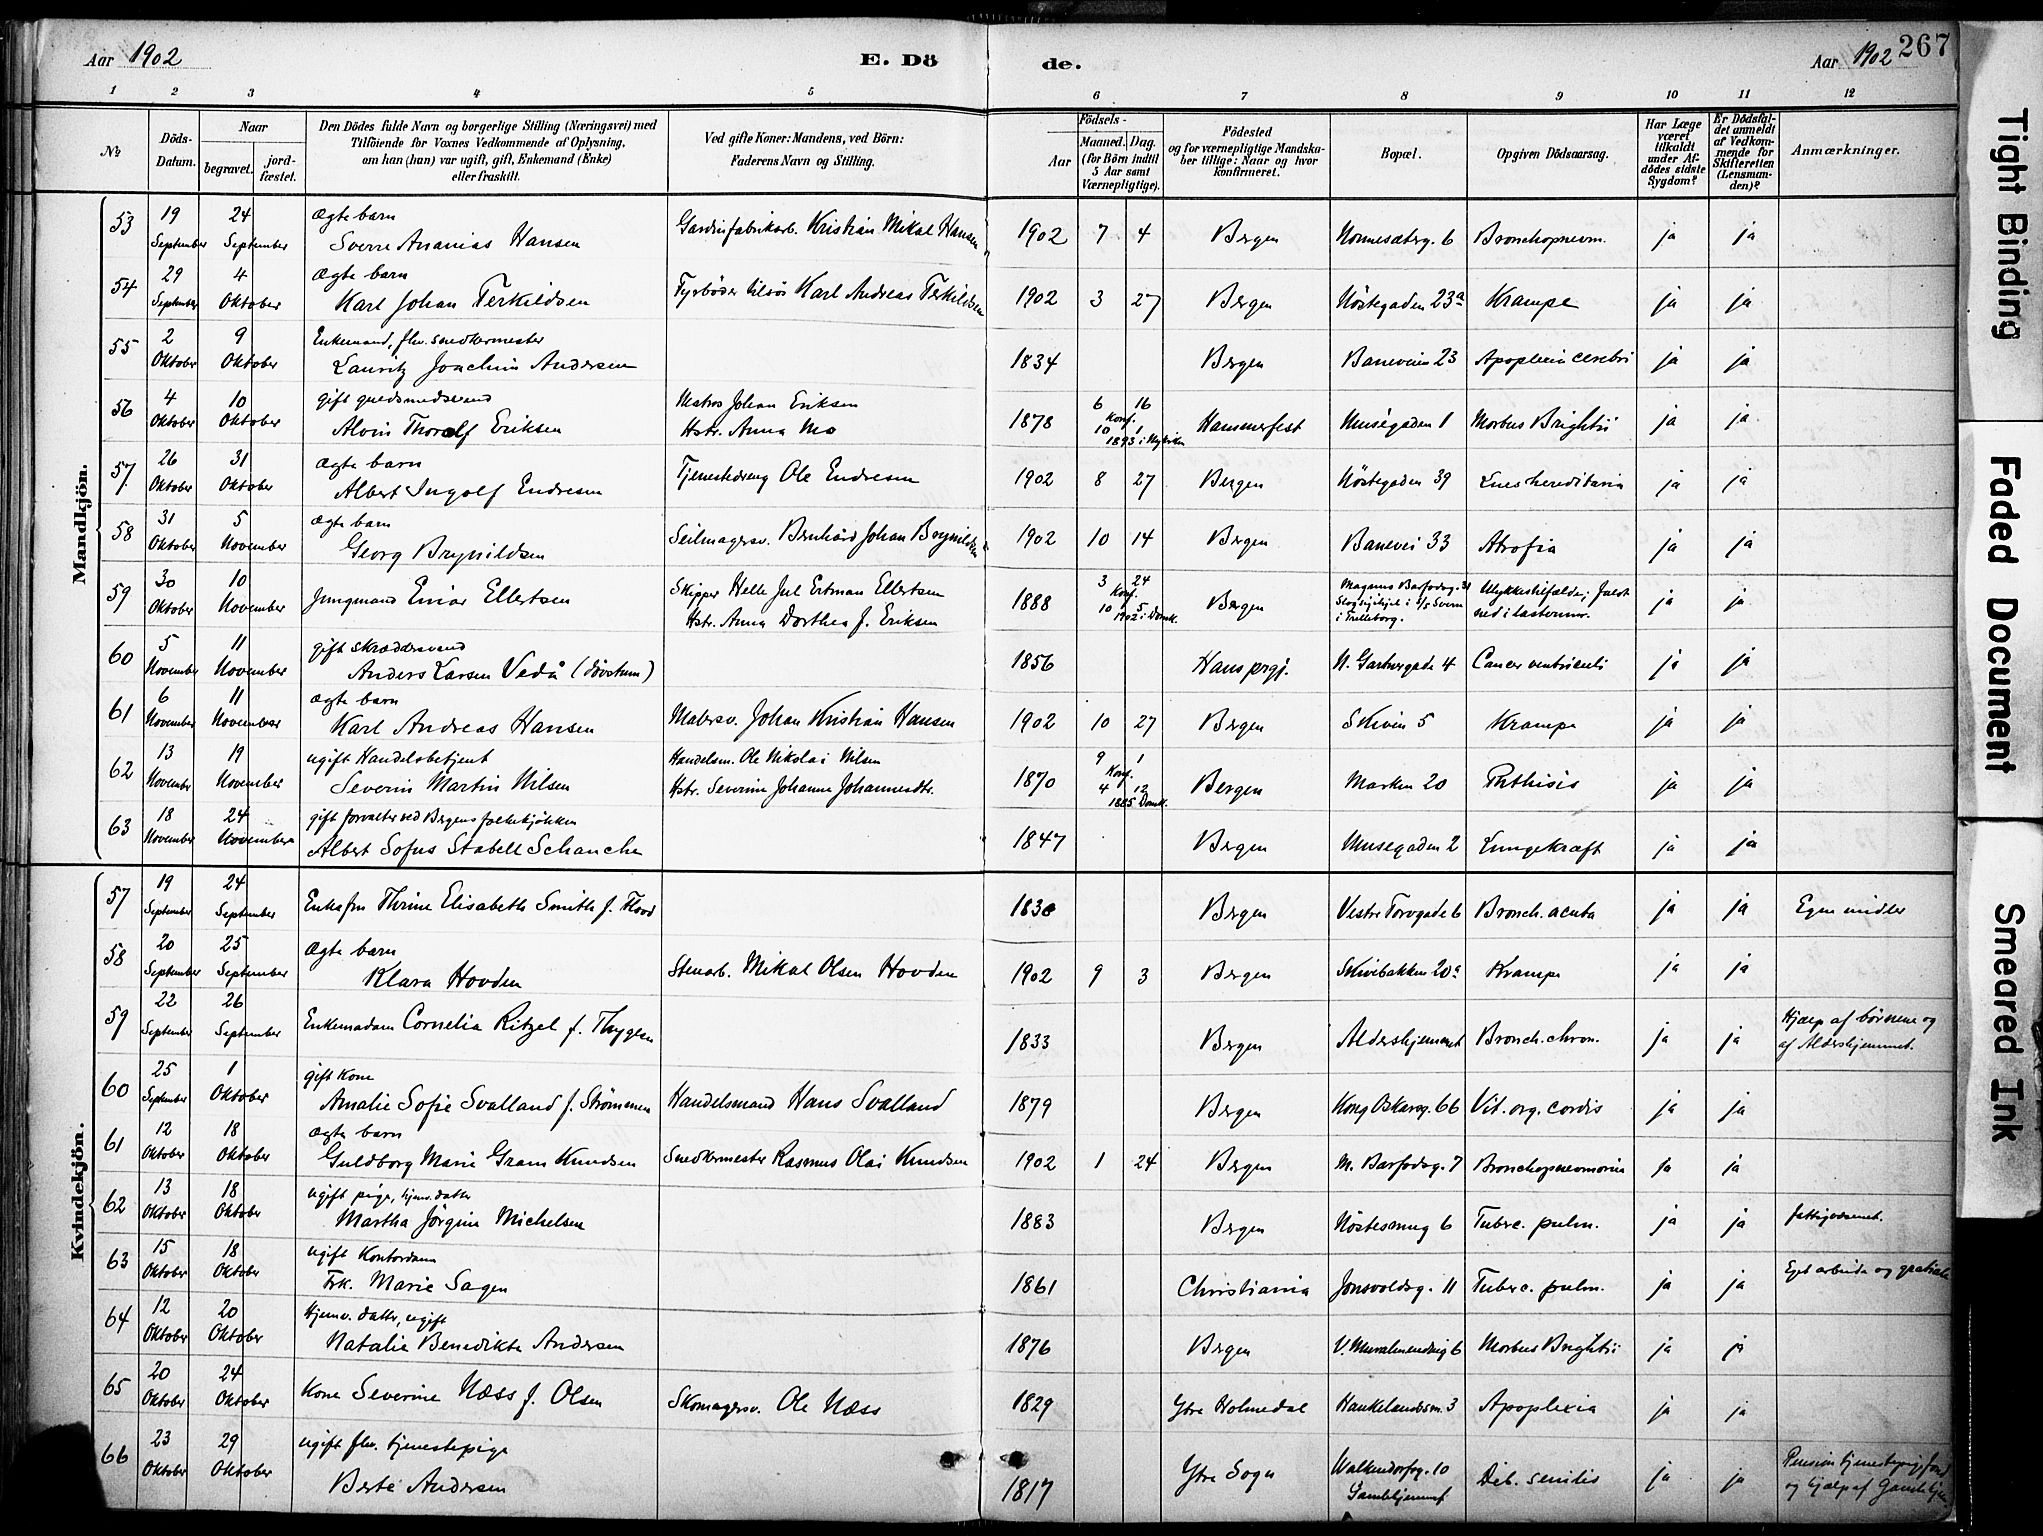 Aar 1902
E. Dö
de.
Aar 1902
267
1 2 3 4 5 6 7 8 9 10 11 12
No
Döds-Datum.
Naar
begravet.
jordfæstet.
Den Dödes fulde Navn og borgerlige Stilling (Næringsvei) med
Tilföiende for Voxnes Vedkommende af Oplysning,
om han (hun) var ugift, gift, Enkemand (Enke)
eller fraskilt.
Ved gifte Koner: Mandens, ved Börn:
Faderens Navn og Stilling.
Födsels-
Aar
Maaned. Dag.
(for Börn indtil
5 Aar samt
Værnepligtige).
Födested
og for værnepligtige Mandska-
ber tillige: Naar og hvor
konfirmeret.
Bopæl.
Opgiven Dödsaarsag.
Har Læge
været
tilkaldt
under Af-
dödes sidste
Sygdom?
Er Dödsfal-
det anmeldt
af Vedkom-
mende for
Skifteretten
(Lensman-
den)?
Anmærkninger.
Mandkjön.
53 19 September 24 September ægte barn
Sverre Ananias Hansen Gardinfabrikarb. Kristian Mikal Hansen 1902 7 4 Bergen Nonnesæterg. 6 Bronchopneum. ja ja
54 29 September 4 Oktober ægte barn
Karl Johan Terkildsen Fyrbøder tilsøs Karl Andreas Terkildsen 1902 3 27 Bergen Nöstegaden 23a Krampe ja ja
55 2 Oktober 9 Oktober Enkemand, fhv. snedkermester
Lauritz Joachim Andersen 1834 Bergen Baneveien 23 Apoplexia cerebri ja ja
56 4 Oktober 10 Oktober gift
Alvin Thoralf Eriksen Matros Johan Eriksen
Hstr. Anna Mo 1878 6 16 Konf. 10 1 1893 i Nykirken Hammerfest Muségaden 1 Morbus Brightii ja ja
57 26 Oktober 31 Oktober ægte barn
Albert Ingolf Endresen Tjenestedreng Ole Endresen 1902 8 27 Bergen Nöstegaden 39 Lues hereditaria ja ja
58 31 Oktober 5 November ægte barn
Georg Brynildsen Seilmagersv. Bernhard Johan Brynildsen 1902 10 14 Bergen Banevei 33 Atrofia ja ja
59 30 Oktober 10 November Jungmand Einar Ellertsen Skipper Helle Jul Ertman Ellertsen
Hstr. Anna Dorthea f. Eriksen 1888 3 24 Konf. 10 5 1902 i Domk. Bergen Magnus Barfodsg. 31
i Trelleborg. Ulykkestilfælde; faldt
ned i lasterum. ja ja
60 5 November 11 November gift skræddersvend
Anders Larsen Vedå (døvstum) 1856 Hans prgj. N. Garvergade 4 Cancer ventriculi ja ja
61 6 November 11 November ægte barn
Karl Andreas Hansen Malersv. Johan Kristian Hansen 1902 10 27 Bergen Skiven 5 Krampe ja ja
62 13 November 19 November ugift Handelsbetjent
Severin Martin Nilsen Handelsm. Ole Nikolai Nilsen
Hstr. Severine Johanne Johannesdtr. 1870 9 1 Konf. 4 12 1885 Domk. Bergen Marken 20 Phthisis ja ja
63 18 November 24 November gift forvalter ved Bergens folkekjøkken
Albert Sofus Stabell Schanche 1847 Bergen Musegaden 2 Lungekræft ja ja
Kvindekjön.
57 19 September 24 September Enkefru Thrine Elisabeth Smith f. Flood 1830 Bergen Vestre Torvgade 6 Bronch. acuta ja ja Egne midler
58 20 September 25 September ægte barn
Klara Hovden Stenarb. Mikal Olsen Hovden 1902 9 3 Bergen Skivebakken 20a Krampe ja ja
59 22 September 26 September Enkemadam Cornelia Ritzel f. Thygesen 1833 Bergen Aldershjemmet Bronch. chron. ja ja Hjælp af børnene og
af Aldershjemmet.
60 25 September 1 Oktober gift Kone
Amalie Sofie Svalland f. Strømmen Handelsmand Hans Svalland 1879 Bergen Kong Oskarsg. 66 Vit. org. cordis ja ja
61 12 Oktober 18 Oktober ægte barn
Guldborg Marie Gram Knudsen Snedkermester Rasmus Olai Knudsen 1902 1 24 Bergen M. Barfodsg. 7 Bronchopneumonia ja ja
62 13 Oktober 18 Oktober ugift pige, hjemv. datter
Martha Jörgine Michelsen 1883 Bergen Nöstesmug 6 Tuberc. pulm. ja ja fattigvæsenet.
63 15 Oktober 18 Oktober ugift Kontordame
Frk. Marie Sagen 1861 Christiania Jonsvoldsg. 11 Tuberc. pulm. ja ja Eget arbeide og
64 12 Oktober 20 Oktober Hjemv. datter, ugift
Natalie Benedikte Andersen 1876 Bergen V. Muralmendnig 6 Morbus Brightii ja ja
65 20 Oktober 24 Oktober Kone Severine Næss f. Olsen Skomagersv. Ole Næss 1829 Ytre Holmedal Haukelandsm. 3 Apoplexia ja ja
66 23 Oktober 29 Oktober ugift fhv. tjenestepige
Berte Andersen 1817 Ytre Sogn Walkendorfsg. 10
Gamlehjemmet Deb. senilis ja ja Pension tjenestepigefond
og hjælp af Gamlehjem.
Tight Binding
Faded Document
Smeared Ink